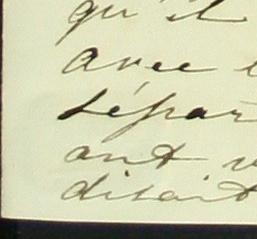 qu'il
avec
sépar
ont
disait